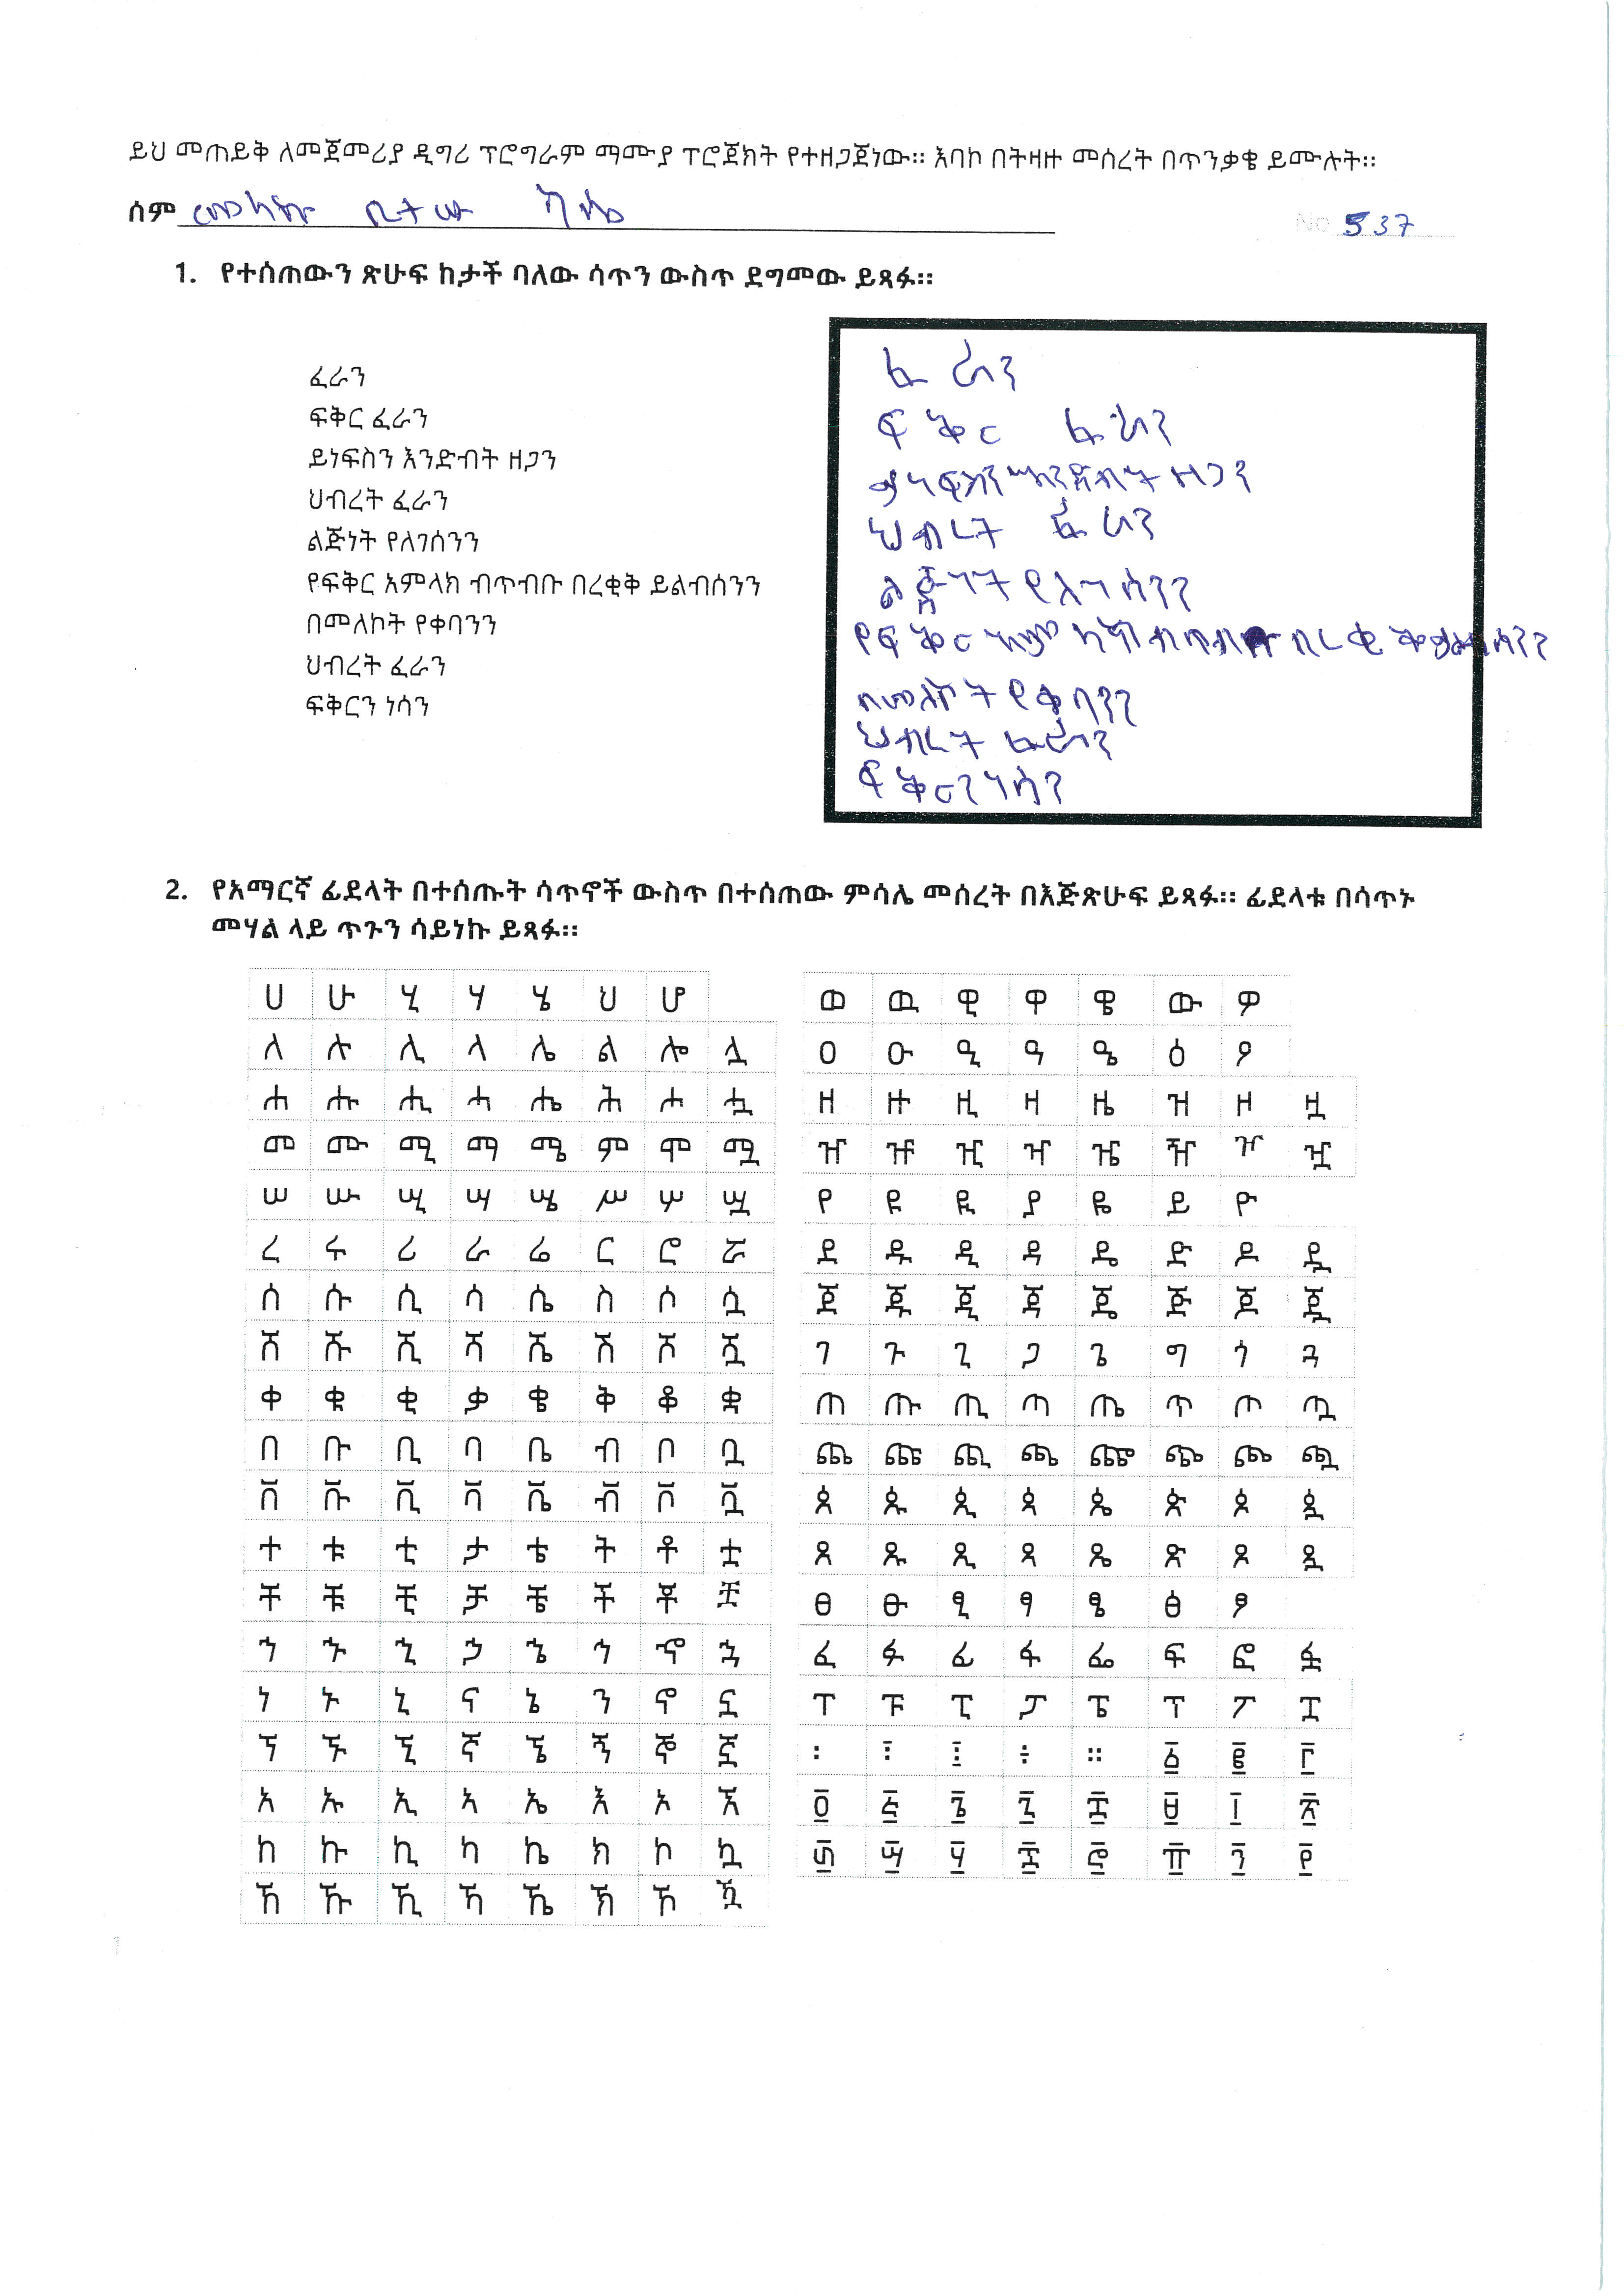 ይህ መጠይቅ ለመጀመሪያ ዲግሪ ፕሮግራም ማሙያ ፕሮጀክት የተዘጋጀነው። እባኮ በትዛዙ መሰረት በጥንቃቄ ይሙሉት።
ሰም
No 537
1. የተሰጠውን ጽሁፍ ከታች ባለው ሳጥን ውስጥ ደግመው ይጻፉ።
ፈራን
ፍቅር ፈራን
ይነፍስን እንድብት ዘጋን
ህብረት ፈራን
ልጅነት የለገሰንን
የፍቅር አምላክ ብጥብቡ በረቂቅ ይልብሰንን
በመለኮት የቀባንን
ህብረት ፈራን
ፍቅርን ነሳን
ፈራን
ፍቅር ፈራን
ይነፍስን እንድብት ዘጋን
ህብረት ፈራን
ልጅነት የለገሰንን
የፍቅር አምላክ ብጥብቡ በረቂቅ ይልብሰንን
በመለኮት የቀባንን
ህብረት ፈራን
ፍቅርን ነሳን
2. የአማርኛ ፊደላት በተሰጡት ሳጥኖች ውስጥ በተሰጠው ምሳሌ መሰረት በእጅጽሁፍ ይጻፉ። ፊደላቱ በሳጥኑ
መሃል ላይ ጥጉን ሳይነኩ ይጻፉ።
ሀ ሁ ሂ ሃ ሄ ህ ሆ
ለ ሉ ሊ ላ ሌ ል ሎ ሏ
ሐ ሑ ሒ ሓ ሔ ሕ ሖ ሗ
መ ሙ ሚ ማ ሜ ም ሞ ሟ
ሠ ሡ ሢ ሣ ሤ ሥ ሦ ሧ
ረ ሩ ሪ ራ ሬ ር ሮ ሯ
ሰ ሱ ሲ ሳ ሴ ስ ሶ ሷ
ሸ ሹ ሺ ሻ ሼ ሽ ሾ ሿ
ቀ ቁ ቂ ቃ ቄ ቅ ቆ ቋ
በ ቡ ቢ ባ ቤ ብ ቦ ቧ
ቨ ቩ ቪ ቫ ቬ ቭ ቮ ቯ
ተ ቱ ቲ ታ ቴ ት ቶ ቷ
ቸ ቹ ቺ ቻ ቼ ች ቾ ቿ
ኀ ኁ ኂ ኃ ኄ ኅ ኆ ኋ
ነ ኑ ኒ ና ኔ ን ኖ ኗ
ኘ ኙ ኚ ኛ ኜ ኝ ኞ ኟ
አ ኡ ኢ ኣ ኤ እ ኦ ኧ
ከ ኩ ኪ ካ ኬ ክ ኮ ኳ
ኸ ኹ ኺ ኻ ኼ ኽ ኾ ዃ
ወ ዉ ዊ ዋ ዌ ው ዎ
ዐ ዑ ዒ ዓ ዔ ዕ ዖ
ዘ ዙ ዚ ዛ ዜ ዝ ዞ ዟ
ዠ ዡ ዢ ዣ ዤ ዥ ዦ ዧ
የ ዩ ዪ ያ ዬ ይ ዮ
ደ ዱ ዲ ዳ ዴ ድ ዶ ዷ
ጀ ጁ ጂ ጃ ጄ ጅ ጆ ጇ
ገ ጉ ጊ ጋ ጌ ግ ጎ ጓ
ጠ ጡ ጢ ጣ ጤ ጥ ጦ ጧ
ጨ ጩ ጪ ጫ ጬ ጭ ጮ ጯ
ጰ ጱ ጲ ጳ ጴ ጵ ጶ ጷ
ጸ ጹ ጺ ጻ ጼ ጽ ጾ ጿ
ፀ ፁ ፂ ፃ ፄ ፅ ፆ
ፈ ፉ ፊ ፋ ፌ ፍ ፎ ፏ
ፐ ፑ ፒ ፓ ፔ ፕ ፖ ፗ
፡ ፣ ፤ ÷ ። ፩ ፪ ፫
፬ ፭ ፮ ፯ ፰ ፱ ፲ ፳
፴ ፵ ፶ ፷ ፸ ፹ ፺ ፻